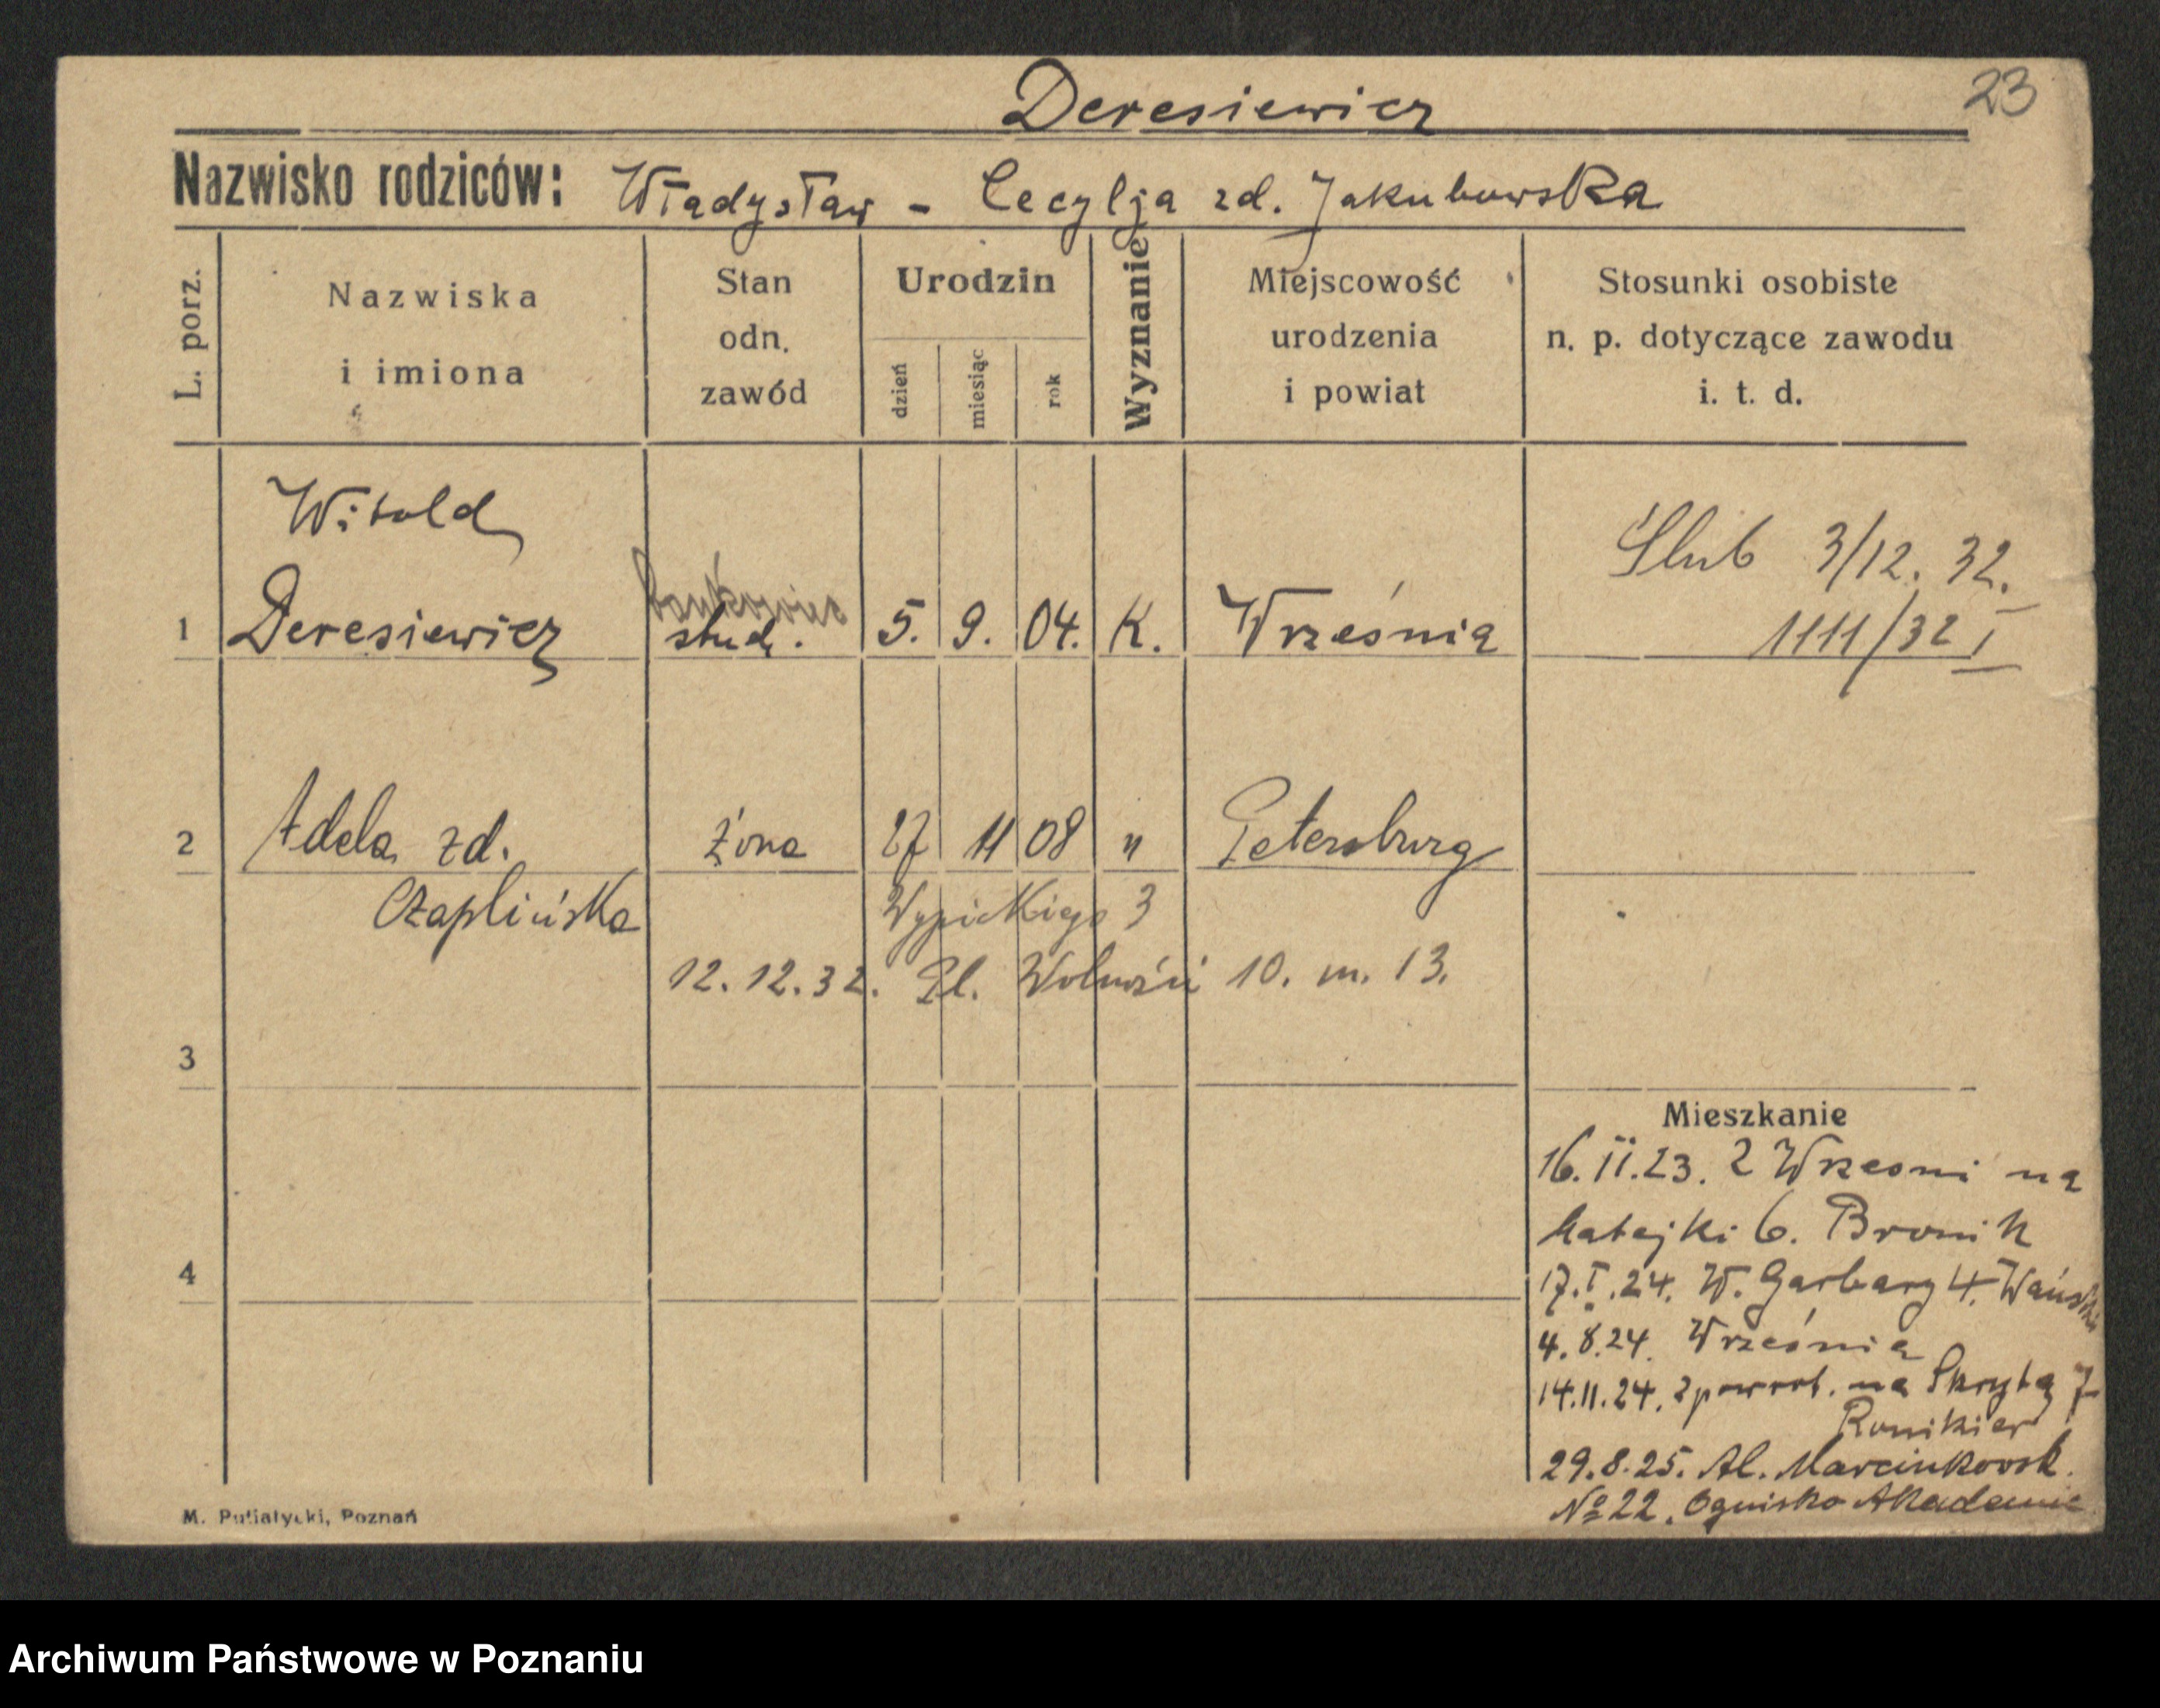 Deresiewicz
23
Nazwisko rodziców: Władysław - Cecylja zd. Jakubowska
L. porz.
Nazwiska
i imiona
Stan
odn.
zawód
Urodzin
dzień
miesiąc
rok
Wyznanie
Miejscowość
urodzenia
i powiat
Stosunki osobiste
n. p. dotyczące zawodu
i. t. d.
Witold
bankowiec
Ślub 3/12. 32.
1 Deresiewicz stud. 5. 9. 04. K. Września 1111/32 I
2 Adela zd. żona 27 11 08 " Petersburg
Czaplińska
3
12.12.32. Pl. Wolności 10. m. 13.
3
Mieszkanie
16.II.23. z Wrzesni na
Matejki 6. Bronik
4
17.I.24. W. Garbary 4.
4.8.24. Września
14.11.24. zpowrot. na Skrytą 7
Ronikier
29.8.25. Al. Marcinkowsk.
No 22. Ognisko Akademic
M. Putiatycki, Poznań
Archiwum Państwowe w Poznaniu